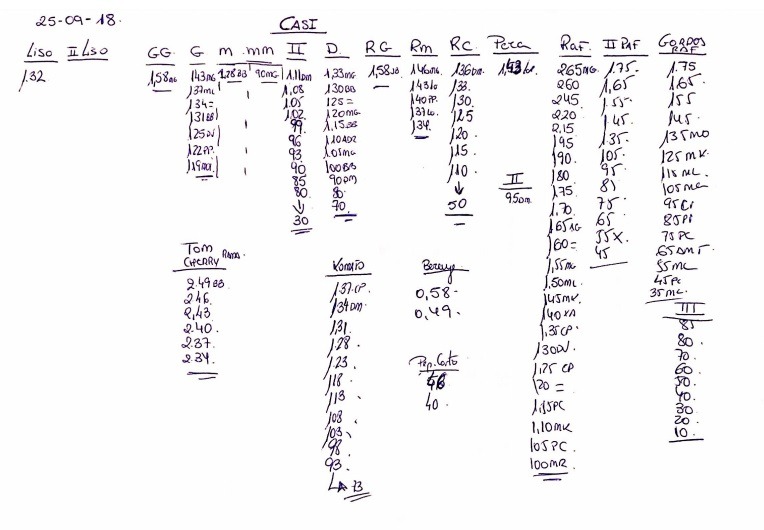 25-09-18.
CASI
Liso II Liso GG G m mm II D. RG Rm RC Pera Raf. II RAF GORDOS RAF
1.32 1,58 143MG 1.28BB 90MG 1.11DM 1,33MG 1,58BB 146MG 136DM 1,43 265MG 1.75 1.75
137ML 1,08 130BB 143 133. 260 1,65 1.65
134= 105 125= 140PP 130. 245 1.55 155
131BB 1.02 120MG 137 125 2.20 1.45 145
125DV 99 1,15BB 134 120 2,15 1.35 135MO
122PP. 96 110ADR 115 195 105 125MK
119 93 105MG 110 190. 95 115ML
90 100BB ↓ 180 85 105MG
85 90DM 50 II 175 75 95CP
80 80 95DM. 1.70 65 85PP
↓ 70 165AG 55X. 75PC
30 160= 45 65DMT
1,55MG 55ML
1,50ML 45PC
145MK 35ML
TOM CHERRY RAMA
2.49BB
246
2,43
2.40
2.37
2.34
KOMATO
1.37CP
134DM
1,31
1.28
1.23
118
113
108
103
98
93
LA 73
Bereng
0,58
0,49
Pep. Corto
48
40
140XA
1,35CP
130DV
1,25 CP
120=
1,15PC
1,10MK
105PC
100MR
III
85
80
70
60
50
40
30
20
10